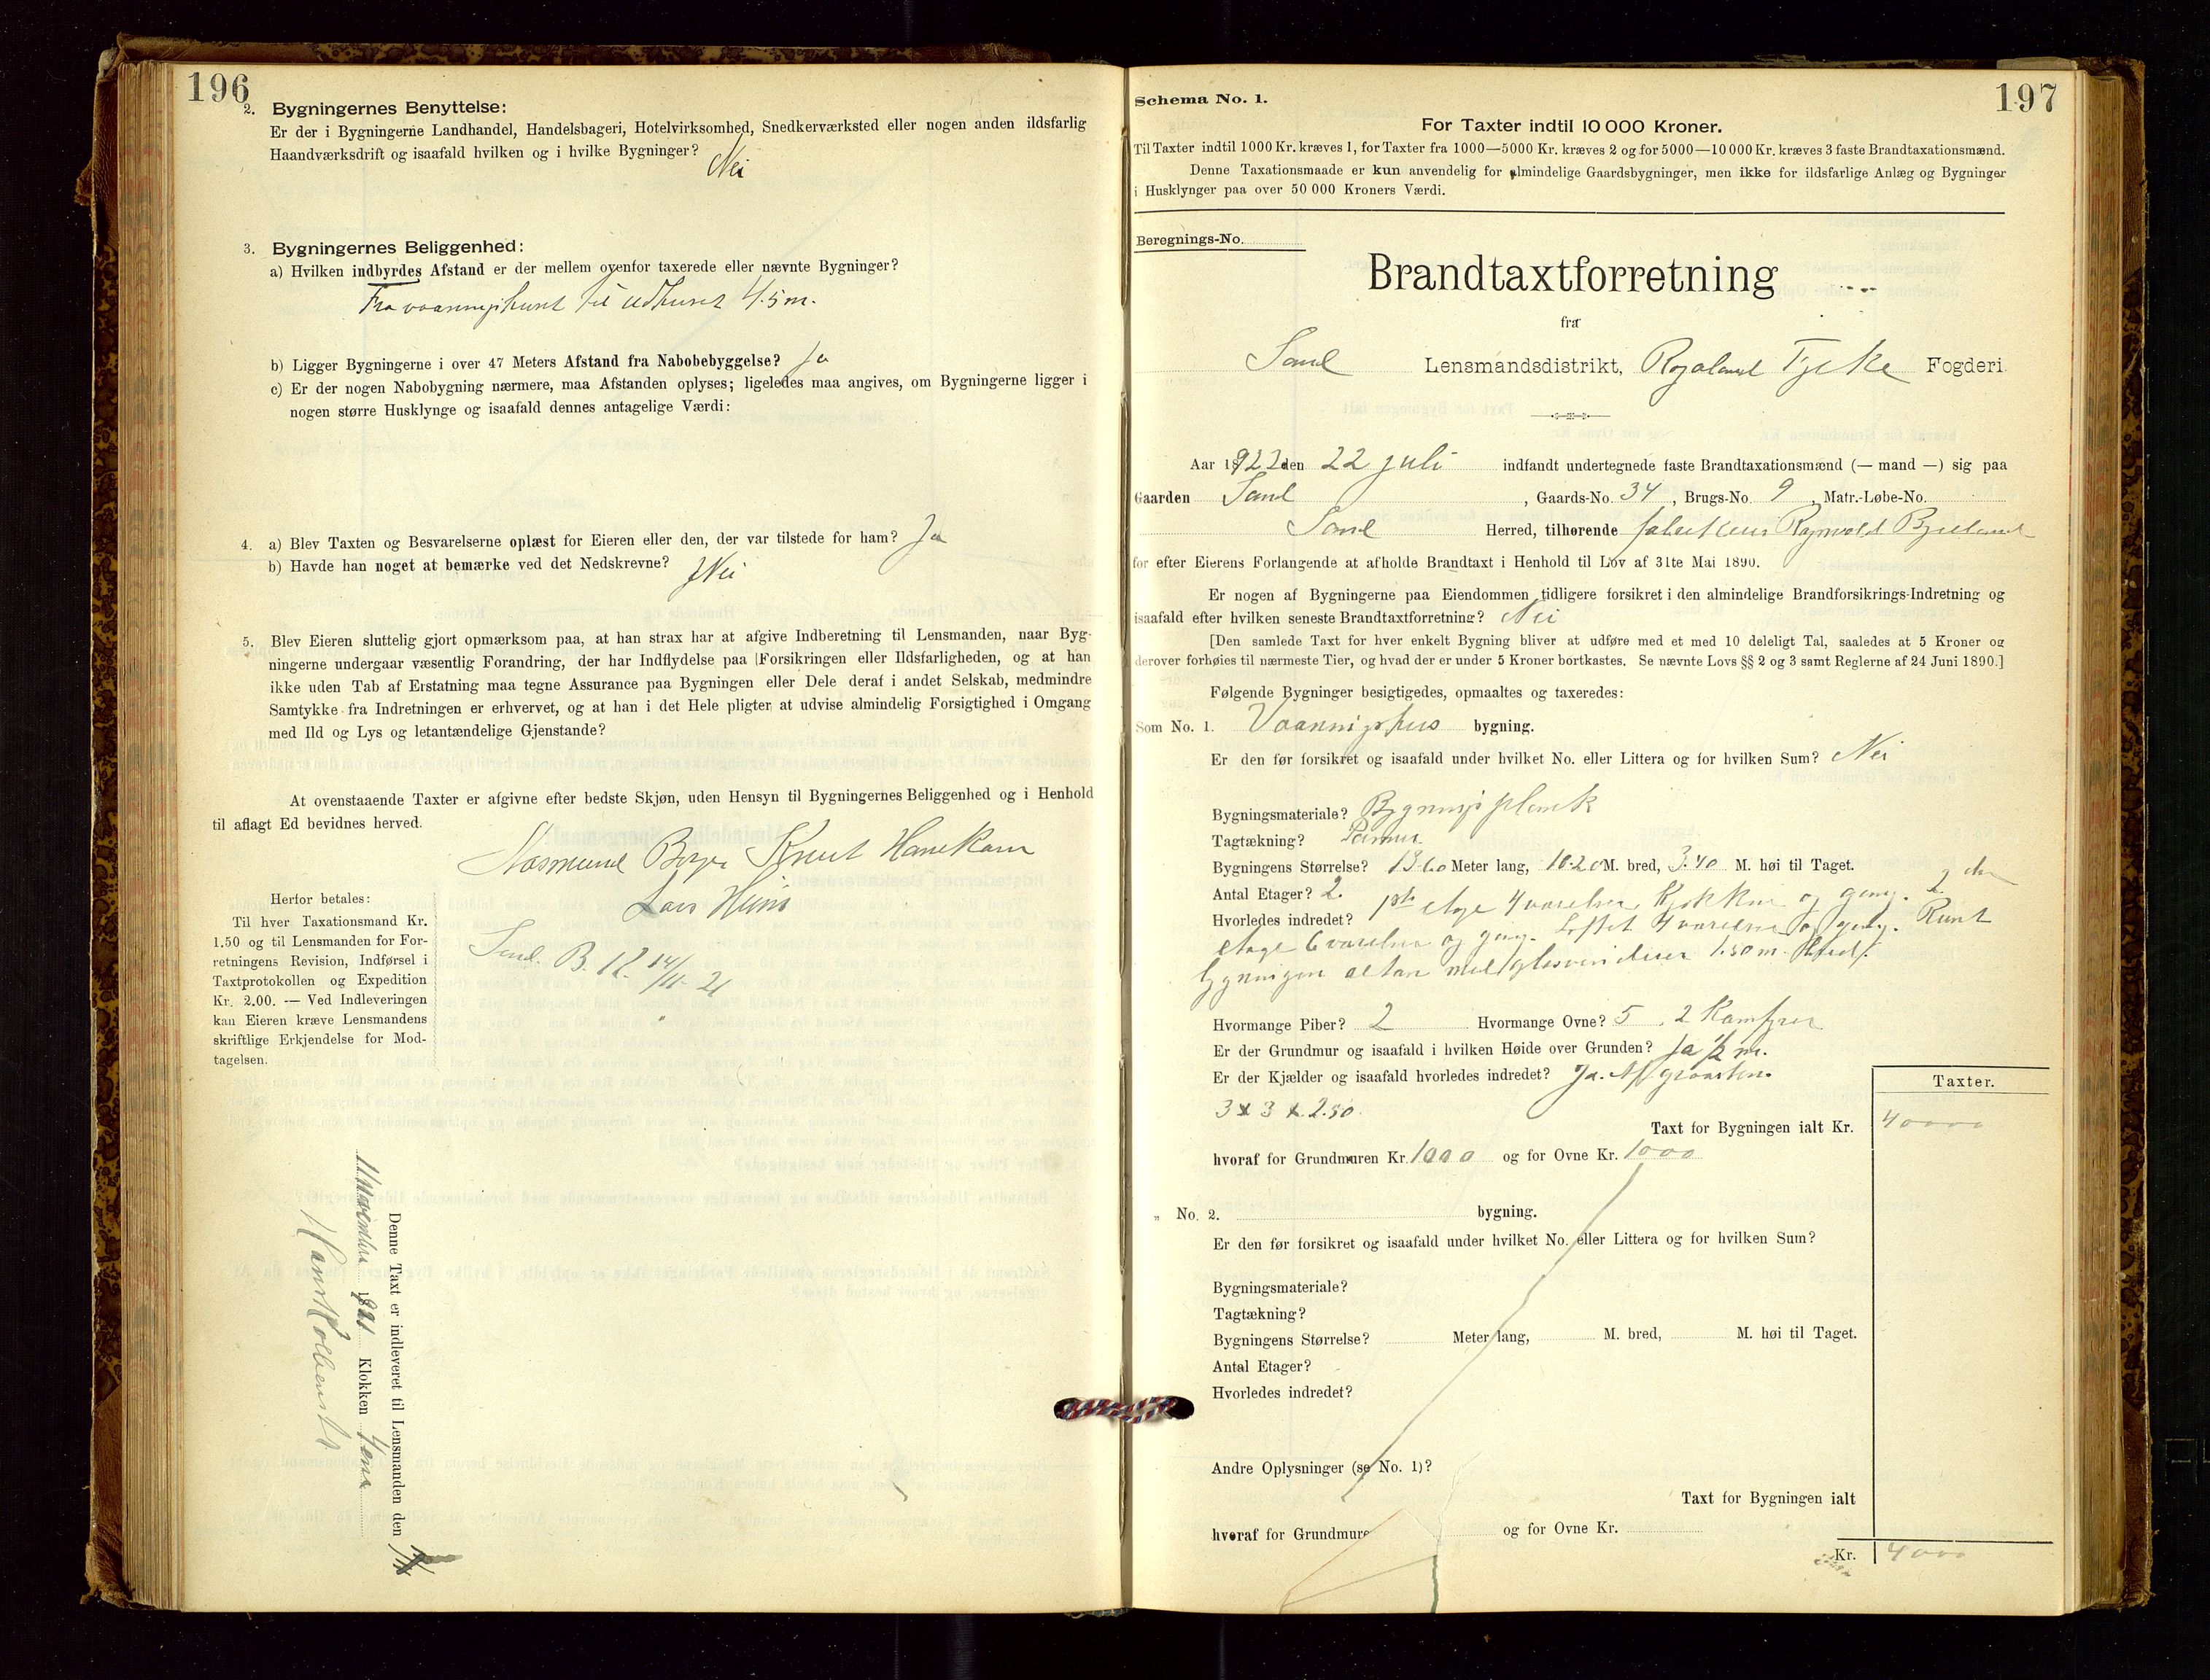 196
2. Bygningernes Benyttelse:
Er der i Bygningerne Landhandel, Handelsbageri, Hotelvirksomhed, Snedkerværksted eller nogen anden ildsfarlig
Haandværksdrift og isaafald hvilken og i hvilke Bygninger? Nei
3. Bygningernes Beliggenhed:
a) Hvilken indbyrdes Afstand er der mellem ovenfor taxerede eller nævnte Bygninger?
Fra vaaningshuset til udhuset 4.5 m.
b) Ligger Bygningerne i over 47 Meters Afstand fra Nabobebyggelse? Ja
c) Er der nogen Nabobygning nærmere, maa Afstanden oplyses; ligeledes maa angives, om Bygningerne ligger i
nogen større Husklynge og isaafald dennes antagelige Værdi:
4. a) Blev Taxten og Besvarelserne oplæst for Eieren eller den, der var tilstede for ham? Ja
b) Havde han noget at bemærke ved det Nedskrevne? Nei
5. Blev Eieren sluttelig gjort opmærksom paa, at han strax har at afgive Indberetning til Lensmanden, naar Byg-
ningerne undergaar væsentlig Forandring, der har Indflydelse paa Forsikringen eller Ildsfarligheden, og at han
ikke uden Tab af Erstatning maa tegne Assurance paa Bygningen eller Dele deraf i andet Selskab, medmindre
Samtykke fra Indretningen er erhvervet, og at han i det Hele pligter at udvise almindelig Forsigtighed i Omgang
med Ild og Lys og letantændelige Gjenstande?
At ovenstaaende Taxter er afgivne efter bedste Skjøn, uden Hensyn til Bygningernes Beliggenhed og i Henhold
til aflagt Ed bevidnes herved.
Knut Hanekam
Lars
Herfor betales:
Til hver Taxationsmand Kr.
1.50 og til Lensmanden for For-
retningens Revision, Indførsel i
Taxtprotokollen og Expedition
Kr. 2.00. — Ved Indleveringen
kan Eieren kræve Lensmandens
skriftlige Erkjendelse for Mod-
tagelsen.
14/11- 21
Denne Taxt er indleveret til Lensmanden den
november 1921 Klokken
197
Schema No. 1.
For Taxter indtil 10 000 Kroner.
Til Taxter indtil 1000 Kr. kræves 1, for Taxter fra 1000—5000 Kr. kræves 2 og for 5000—10 000 Kr. kræves 3 faste Brandtaxationsmænd.
Denne Taxationsmaade er kun anvendelig for almindelige Gaardsbygninger, men ikke for ildsfarlige Anlæg og Bygninger
i Husklynger paa over 50 000 Kroners Værdi.
Beregnings-No.
Brandtaxtforretning
fra
Sand Lensmandsdistrikt, Rogaland Fylke Fogderi
Aar 1922 den 22 juli indfandt undertegnede faste Brandtaxationsmænd (— mand —) sig paa
Gaarden Sand , Gaards-No. 34 , Brugs-No. 9 , Matr.-Løbe-No.
Sand Herred, tilhørende Ragnvald
for efter Eierens Forlangende at afholde Brandtaxt i Henhold til Lov af 31te Mai 1890.
Er nogen af Bygningerne paa Eiendommen tidligere forsikret i den almindelige Brandforsikrings-Indretning og
isaafald efter hvilken seneste Brandtaxtforretning? Nei
[Den samlede Taxt for hver enkelt Bygning bliver at udføre med et med 10 deleligt Tal, saaledes at 5 Kroner og
derover forhøies til nærmeste Tier, og hvad der er under 5 Kroner bortkastes. Se nævnte Lovs §§ 2 og 3 samt Reglerne af 24 Juni 1890.]
Følgende Bygninger besigtigedes, opmaaltes og taxeredes:
Som No. 1. Vaaningshus bygning.
Er den før forsikret og isaafald under hvilket No. eller Littera og for hvilken Sum? Nei
Bygningsmateriale? Bygningsplank
Tagtækning?
Bygningens Størrelse? 13.60 Meter lang, 10.20 M. bred, 3.40 M. høi til Taget.
Antal Etager? 2.
Hvorledes indredet? 1ste etage 4 værelser, kjøkken og gang. 2 den
etage 6 værelser og gang. Loftet 4 værelser og gang. Rundt
bygningen altan med glasvinduer 1.50 m. bred.
Hvormange Piber? 2 Hvormange Ovne? 5 . 2 Komfyrer
Er der Grundmur og isaafald i hvilken Høide over Grunden? Ja ½ m.
Er der Kjælder og isaafald hvorledes indredet? Ja. Af graasten.
3 x 3 x 2.50.
Taxter.
Taxt for Bygningen ialt Kr. 40000
hvoraf for Grundmuren Kr. 1000 og for Ovne Kr. 1000
" No. 2. bygning.
Er den før forsikret og isaafald under hvilket No. eller Littera og for hvilken Sum?
Bygningsmateriale?
Tagtækning?
Bygningens Størrelse? Meter lang, M. bred, M. høi til Taget.
Antal Etager?
Hvorledes indredet?
Andre Oplysninger (se No. 1)?
Taxt for Bygningen ialt
hvoraf for Grundmure og for Ovne Kr.
Kr. 4000